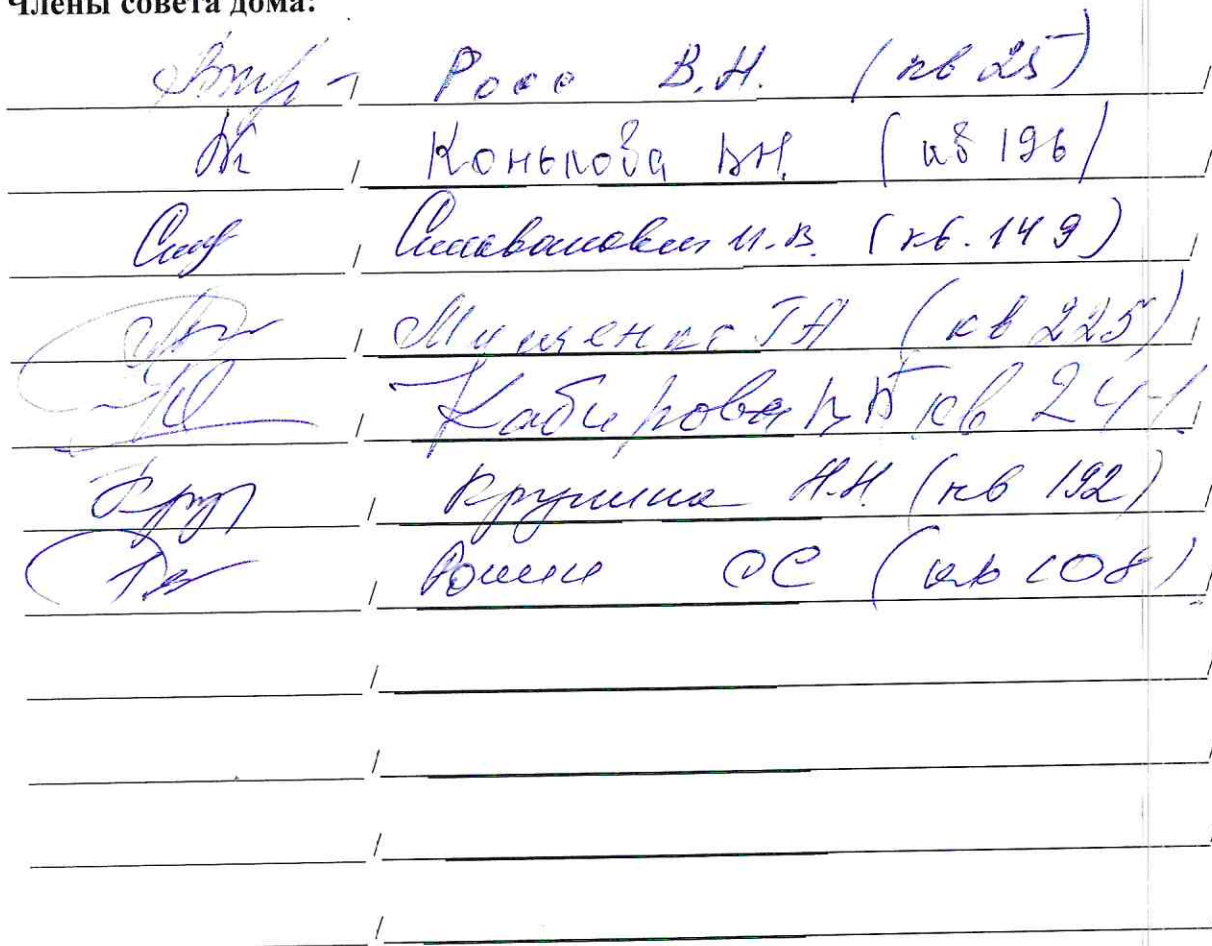 Члены совета дома:
/ Росс В.Н. (кв 25) /
/ Конькова ВН. (кв 196) /
/ И.В. (кв. 149) /
/ Мищенко ТА (кв 225) /
/ Кабирова кв 241. /
/ Крупина Н.Н. (кв 192) /
/ ОС (кв 108) /
/ /
/ /
/ /
/